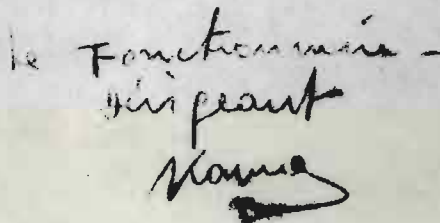 le Fonctionnaire -
dirigeant